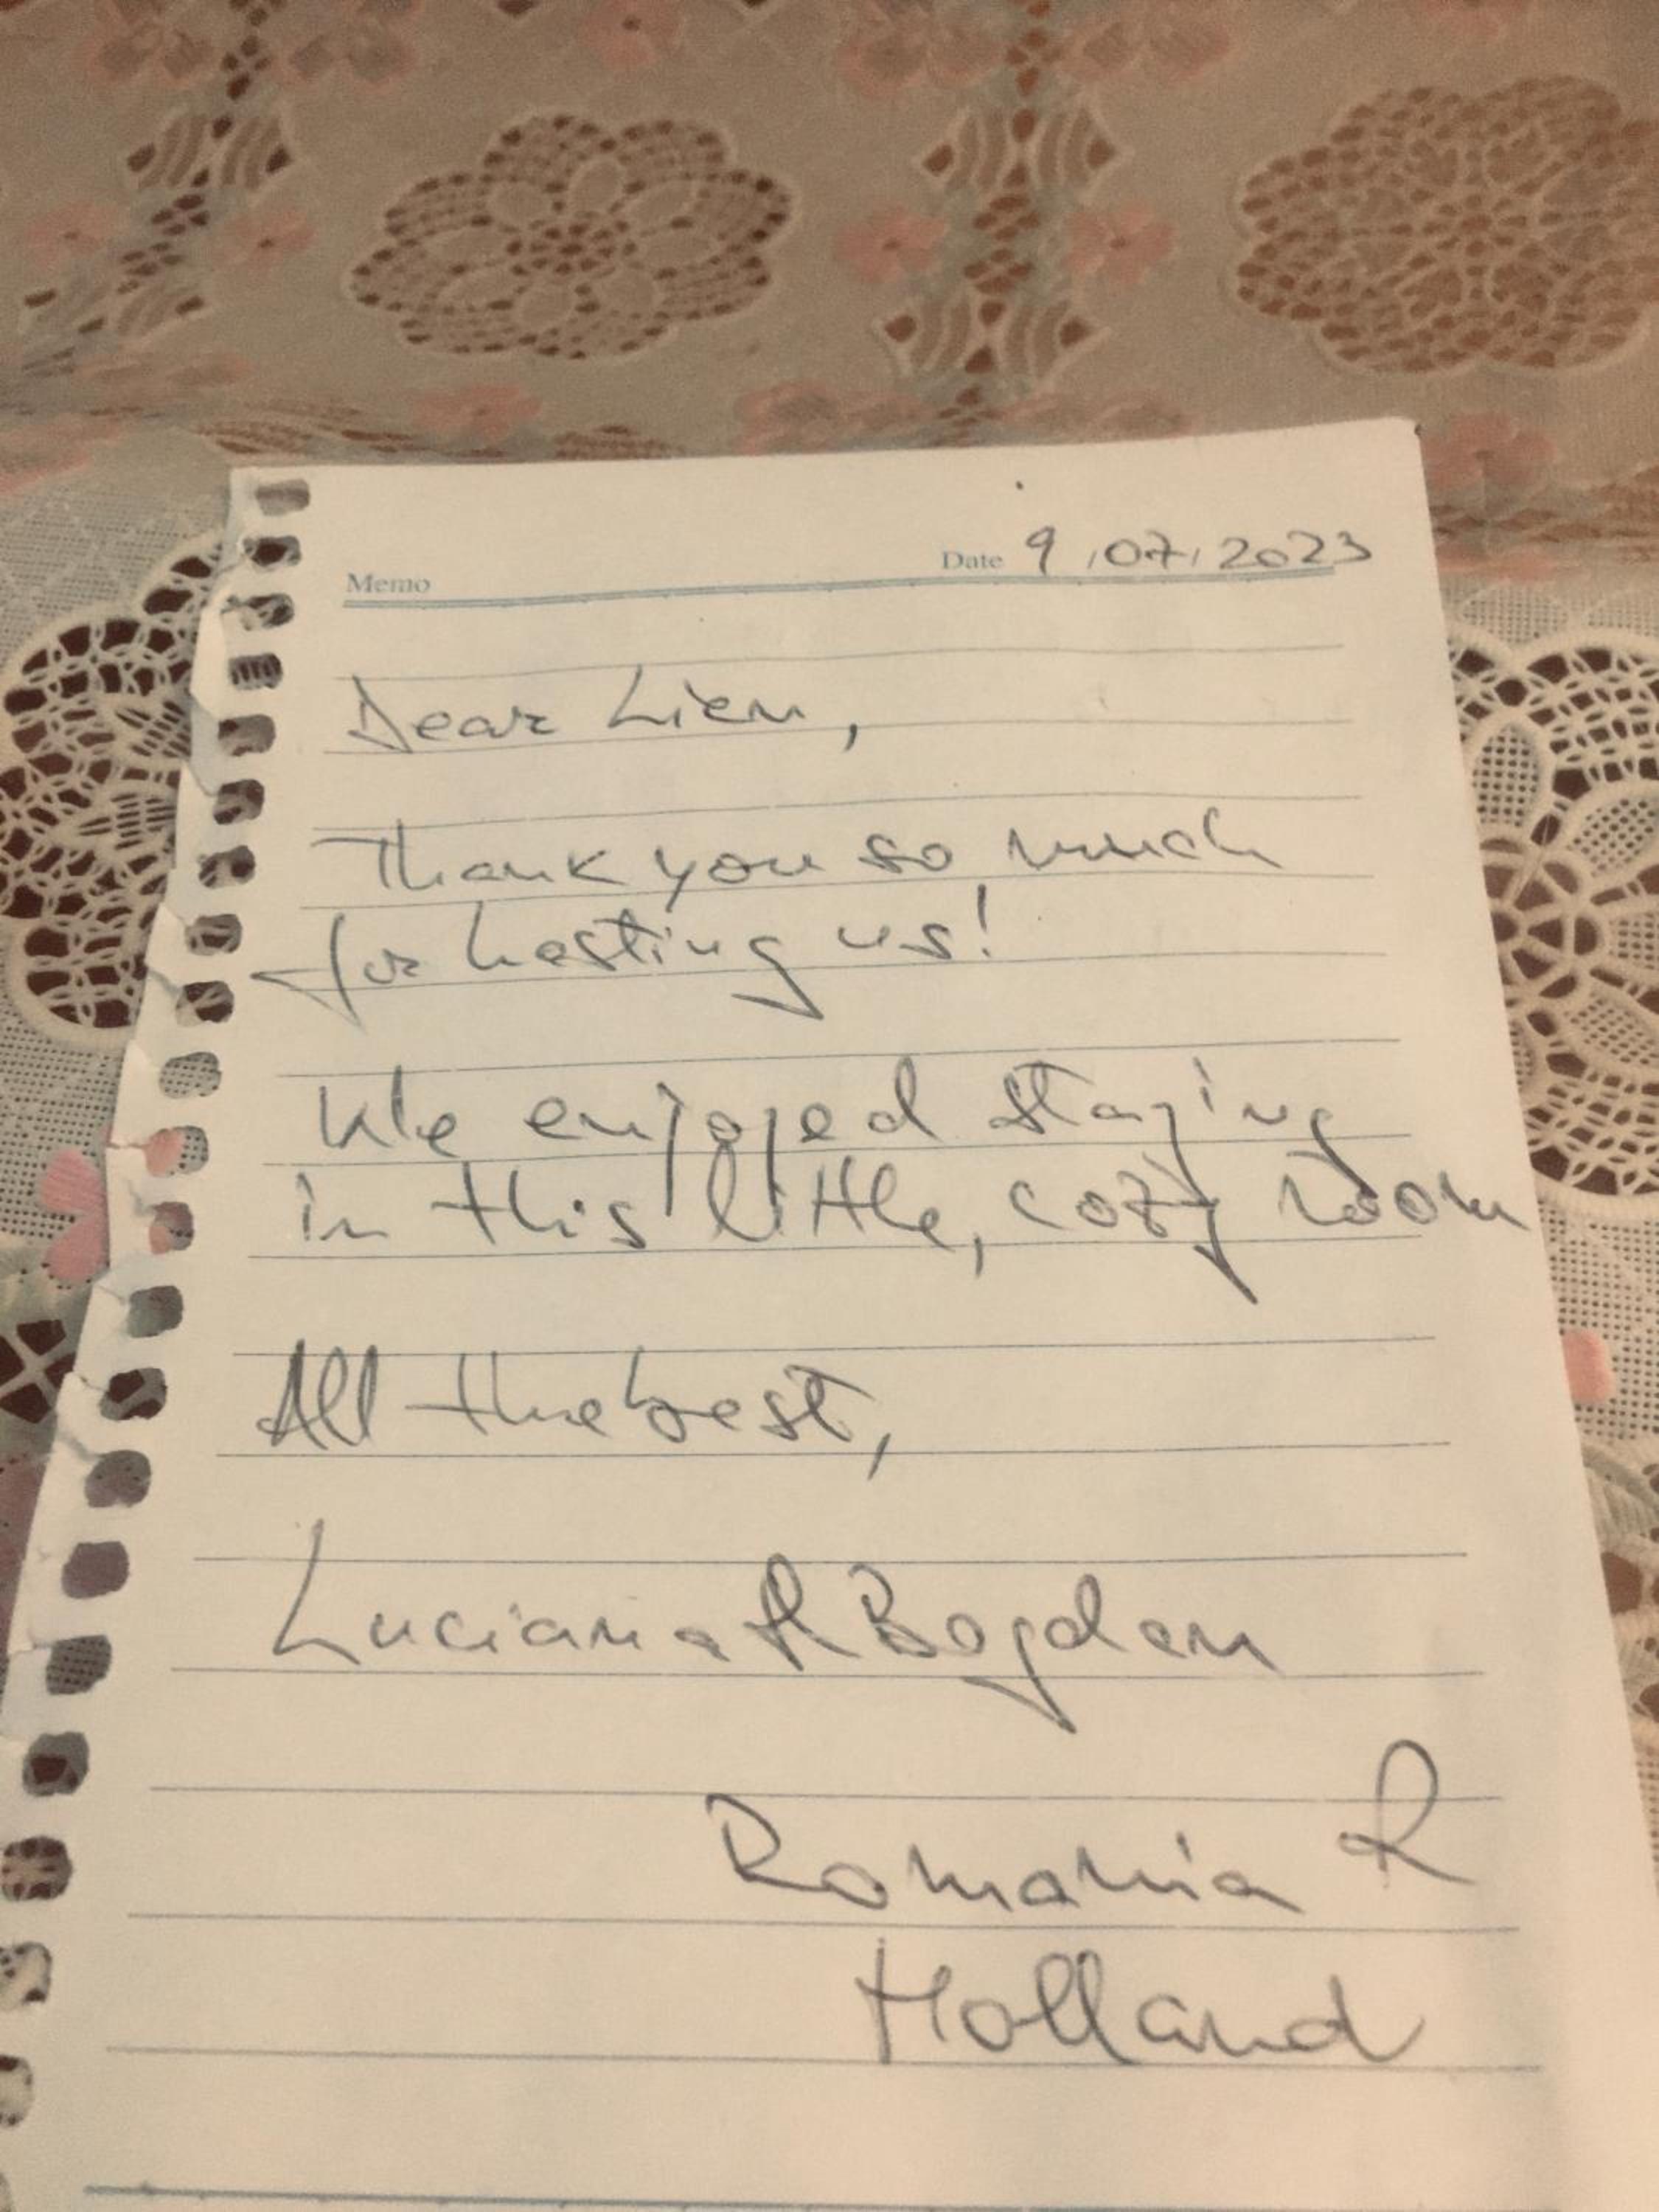 Memo Date 9.07.2023
Dear Lien,
Thank you so much
for hosting us!
We enjoyed staying
in this little, cozy room
All the best,
Luciana & Bogdan
Romania &
Holland